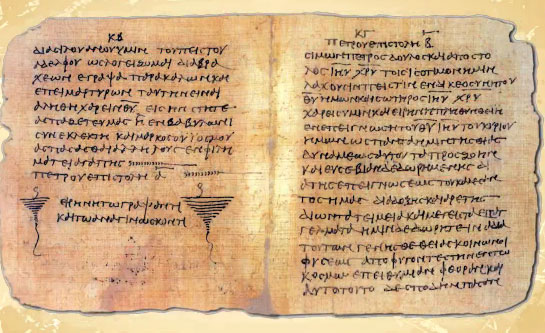 ΚΒ
ΔΙΑ ΣΙΛΟΥΑΝΟΥ ΥΜΙΝ ΤΟΥ ΠΙΣΤΟΥ
ΑΔΕΛΦΟΥ ΩΣ ΛΟΓΕΙΖΟΜΑΙ ΔΙΑ ΒΡΑ
ΧΕΩΝ ΕΓΡΑΨΑ ΠΑΡΑΚΑΛΩΝ ΚΑΙ
ΕΠΕΙΜΑΡΤΥΡΩΝ ΤΑΥΤΗΝ ΕΙΝΑΙ
ΑΛΗΘΗ ΧΑΡΕΙΝ ΕΙΣ ΗΝ ΣΤΗΤΕ
ΑΣΠΑΖΕΤΕ ΥΜΑΣ Η ΕΝ ΒΑΒΥΛΩΝΙ
ΣΥΝΕΚΛΕΚΤΗ ΚΑΙ ΜΑΡΚΟΣ Ο ΥΙΟΣ ΜΟΥ
ΑΣΠΑΣΑΣΘΕ ΑΛΛΗΛΟΥΣ ΕΝ ΦΙΛΗ
ΜΑΤΕΙ ΑΓΑΠΗΣ
ΠΕΤΡΟΥ ΕΠΙΣΤΟΛΗ Α
ΕΙΡΗΝΗ ΤΩ ΓΡΑΨΑΝΤΙ
ΚΑΙ ΤΩ ΑΝΑΓΙΝΩΣΚΟΝΤΙ
ΚΓ
ΠΕΤΡΟΥ ΕΠΙΣΤΟΛΗ Β
ΣΙΜΩΝ ΠΕΤΡΟΣ ΔΟΥΛΟΣ ΚΑΙ ΑΠΟΣΤΟ
ΛΟΣ ΙΗΥ ΧΡΥ ΤΟΙΣ ΙΣΟΤΙΜΟΝ ΗΜΙΝ
ΛΑΧΟΥΣΙΝ ΠΙΣΤΙΝ ΕΝ ΔΙΚΕΟΣΥΝΗ ΤΟΥ
ΘΥ ΗΜΩΝ ΚΑΙ ΣΩΤΗΡΟΣ ΙΗΥ ΧΡΥ
ΧΑΡΕΙΣ ΥΜΙΝ ΚΑΙ ΕΙΡΗΝΗ ΠΛΗΘΥΝΘΕΙΗ
ΕΝ ΕΠΕΙΓΝΩΣΗ ΤΟΥ ΘΥ ΙΗΥ ΤΟΥ ΚΥΡΙΟΥ
ΗΜΩΝ ΩΣ ΠΑΝΤΑ ΗΜΙΝ ΤΗΣ ΘΕΙΑΣ
ΔΥΝΑΜΕΩΣ ΑΥΤΟΥ ΤΑ ΠΡΟΣ ΖΩΗΝ
ΚΑΙ ΕΥΣΕΒΙΑΝ ΔΕΔΩΡΗΜΕΝΗΣ ΔΙ
Α ΤΗΣ ΕΠΕΙΓΝΩΣΕΩΣ ΤΟΥ ΚΑΛΕΣΑΝ
ΤΟΣ ΗΜΑΣ ΔΙΑ ΔΟΞΗΣ ΚΑΙ ΑΡΕΤΗΣ
ΔΙ ΩΝ ΤΑ ΤΙΜΕΙΑ ΚΑΙ ΜΕΓΙΣΤΑ ΕΠΑΓ
ΓΕΛΜΑΤΑ ΗΜΙΝ ΔΕΔΩΡΗΤΕ ΙΝΑ ΔΙΑ
ΤΟΥΤΩΝ ΓΕΝΗΣΘΕ ΘΕΙΑΣ ΚΟΙΝΩΝΟΙ
ΦΥΣΕΩΣ ΑΠΟΦΥΓΟΝΤΕΣ ΤΗΝ ΕΝ ΤΩ
ΚΟΣΜΩ ΕΠΕΙΘΥΜΙΑΝ ΦΘΟΡΑΣ ΚΑΙ
ΑΥΤΟ ΤΟΥΤΟ ΔΕ ΣΠΟΥΔΗΝ ΠΑΣΑΝ